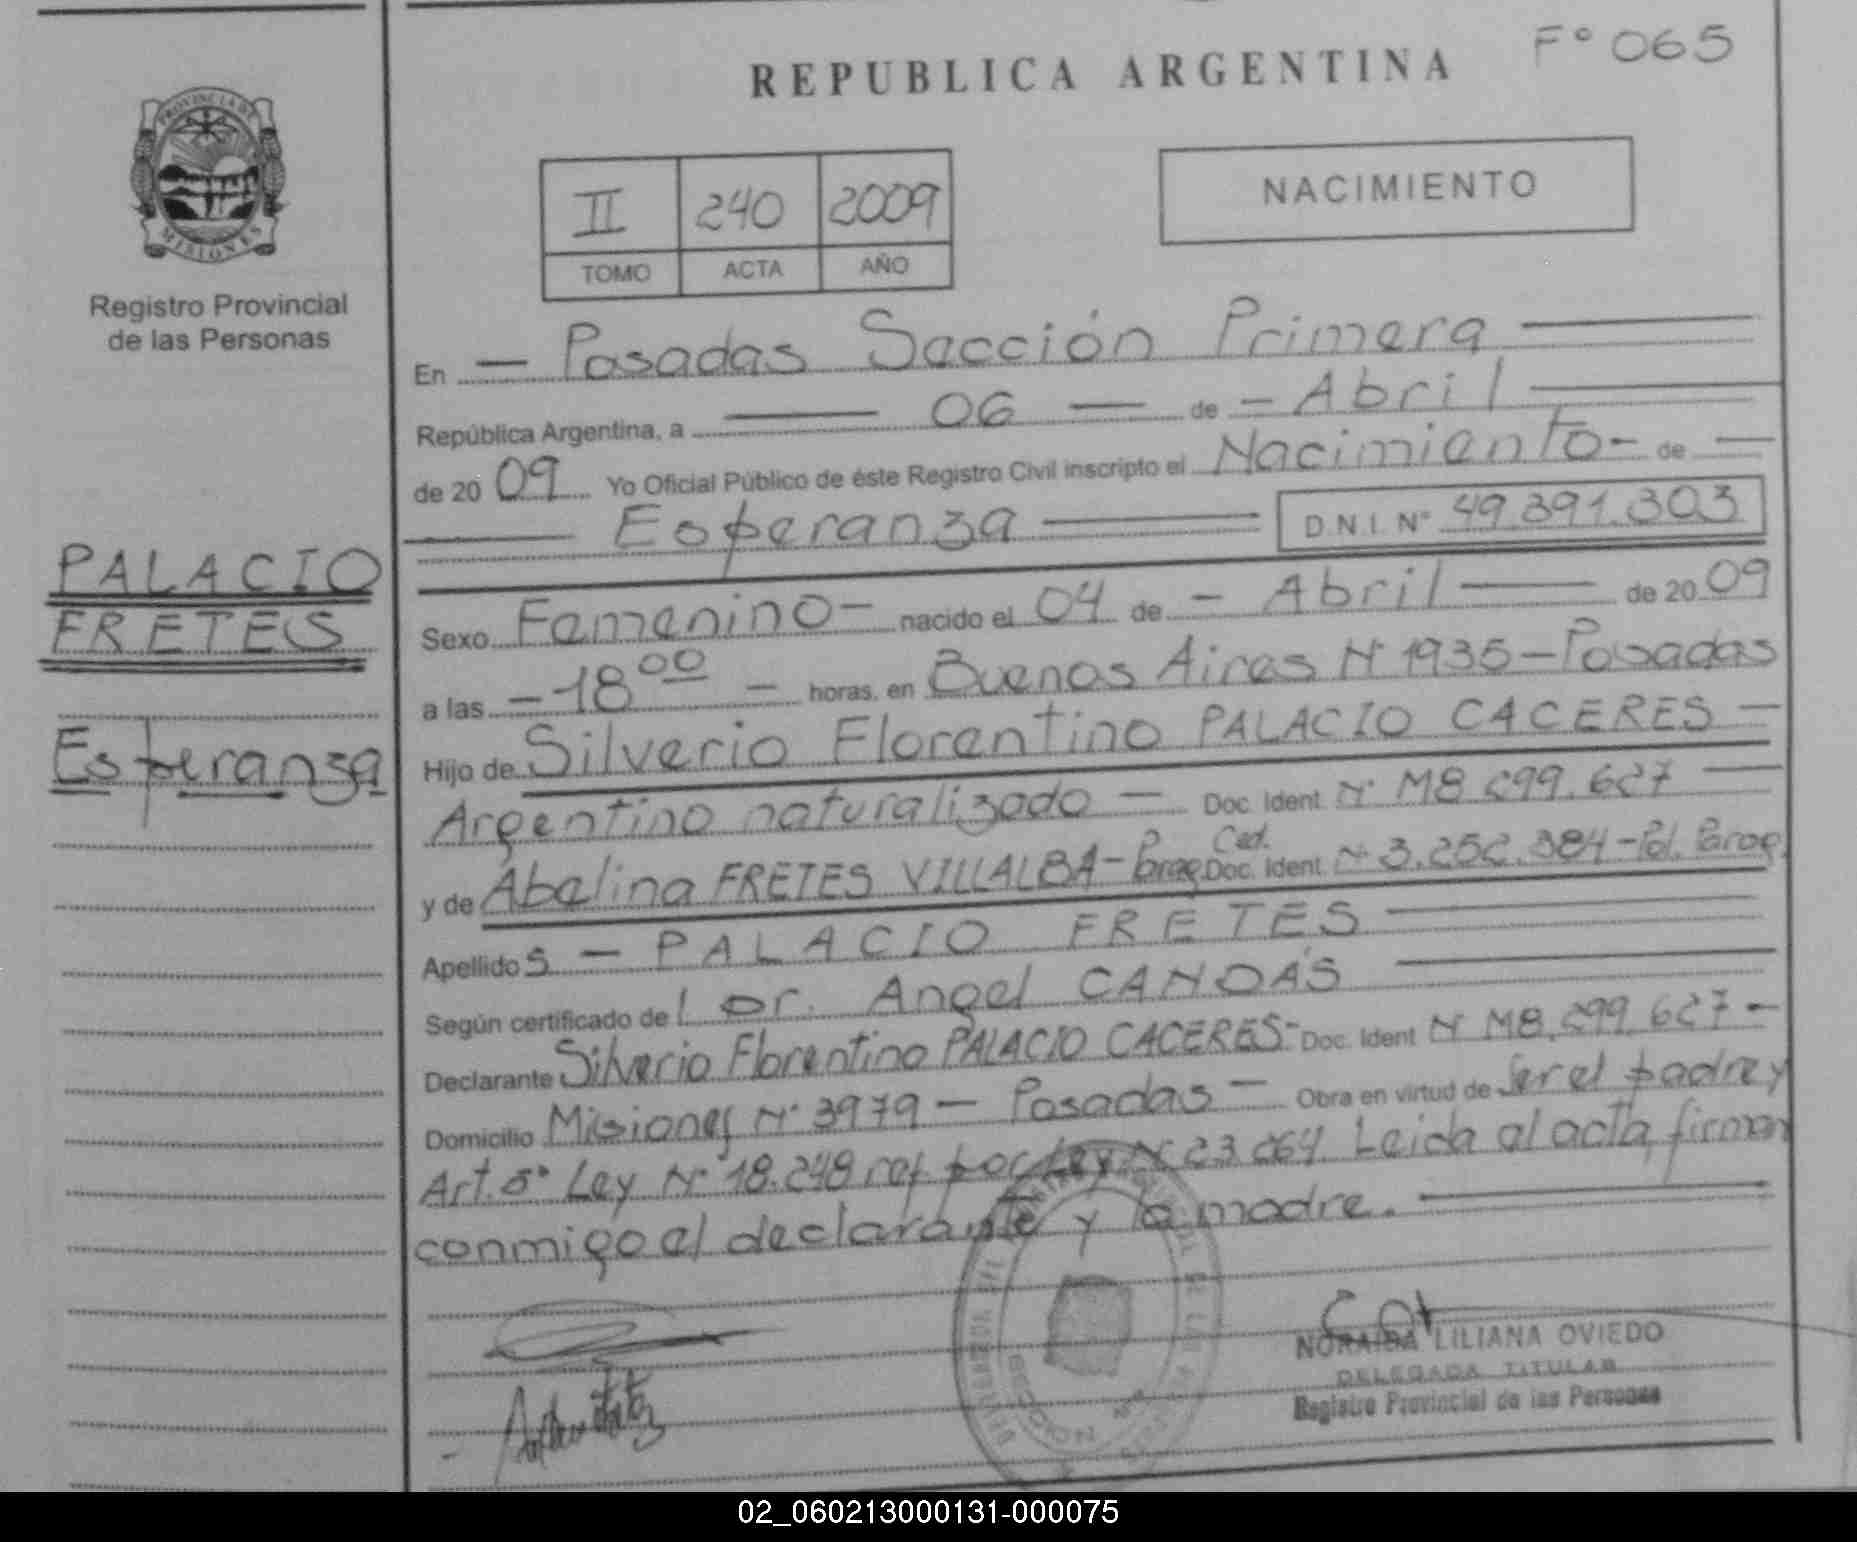 F° 065
REPUBLICA ARGENTINA
PROVINCIA DE
MISIONES
Registro Provincial
de las Personas
II 240 2009
TOMO ACTA AÑO
NACIMIENTO
En — Posadas Sección Primera
República Argentina, a — 06 — de - Abril
de 20 09 Yo Oficial Público de éste Registro Civil inscripto el Nacimiento - de —
— Esperanza — D.N.I. N° 49.391.303
PALACIO
FRETES
Esperanza
Sexo Femenino - nacido el 04 de - Abril — de 20 09
a las - 18 00 - horas, en Buenos Aires N° 1935 - Posadas
Hijo de Silverio Florentino PALACIO CACERES -
Argentino naturalizado - Doc. Ident N° M8.299.627 —
y de Abelina FRETES VILLALBA - Parag. Ced. Doc. Ident. N° 3.252.384 - Pol. Parag.
Apellido s - PALACIO FRETES
Según certificado de l Dr. Angel CANDÁS
Declarante Silverio Florentino PALACIO CACERES - Doc. Ident N° M8.299.627 -
Domicilio Misiones N° 3979 - Posadas - Obra en virtud de Ser el padre y
Art. 5° Ley N° 18.248 ref por Ley N° 23.264 Leida al acta, firman
conmigo el declarante y la madre.
NORAIDA LILIANA OVIEDO
DELEGADA TITULAR
Registro Provincial de las Personas
02_060213000131-000075